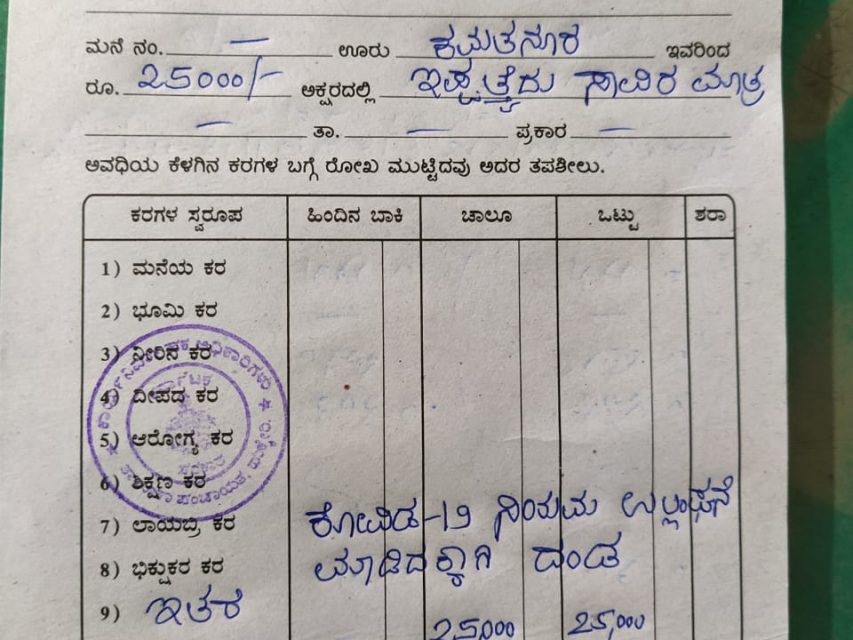 ಮನೆ ನಂ. — ಊರು ಕಮತನೂರ ಇವರಿಂದ
ರೂ. 25000/- ಅಕ್ಷರದಲ್ಲಿ ಇಪ್ಪತ್ತೈದು ಸಾವಿರ ಮಾತ್ರ
— ತಾ. — ಪ್ರಕಾರ —
ಅವಧಿಯ ಕೆಳಗಿನ ಕರಗಳ ಬಗ್ಗೆ ರೋಖ ಮುಟ್ಟಿದವು ಅದರ ತಪಶೀಲು.
ಕರಗಳ ಸ್ವರೂಪ ಹಿಂದಿನ ಬಾಕಿ ಚಾಲೂ ಒಟ್ಟು ಶರಾ
1) ಮನೆಯ ಕರ
2) ಭೂಮಿ ಕರ
3) ನೀರಿನ ಕರ
4) ದೀಪದ ಕರ
5) ಆರೋಗ್ಯ ಕರ
6) ಶಿಕ್ಷಣ ಕರ
7) ಲಾಯಬ್ರಿ ಕರ ಕೋವಿಡ-19 ನಿಯಮ ಉಲ್ಲಂಘನೆ
8) ಭಿಕ್ಷುಕರ ಕರ ಮಾಡಿದಕ್ಕಾಗಿ ದಂಡ
9) ಇತರ
25,000 25,000